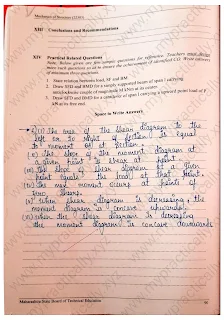 Mechanics of Structure (22303)
XIII Conclusions and Recommendations
XIV Practical Related Questions
Note: Below given are few sample questions for reference. Teachers must design
more such questions so as to ensure the achievement of identified CO. Write answers
of minimum three questions.
1. State relation between load, SF and BM
2. Draw SFD and BMD for a simply supported beam of span l carrying
couple of magnitude M kNm at its center.
3. Draw SFD and BMD for a cantilever of span l carrying a upward point load of P
kN at its free end.
Space to Write Answers
The area of the shear diagram to the
left or to right of section is equal
to moment at section.
the slope of the moment diagram at
a given point is shear at point.
the slope of shear diagram at a given
point equals the load at that point.
the max moment occurs at points of
zero shear.
when shear diagram is increasing, the
moment diagram is concave upwards.
when the shear diagram is decreasing
the moment diagram is concave downwards
Maharashtra State Board of Technical Education